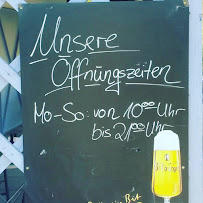 Unsere
Öffnungszeiten
Mo-So: von 10⁰⁰ Uhr
bis 21⁰⁰ Uhr